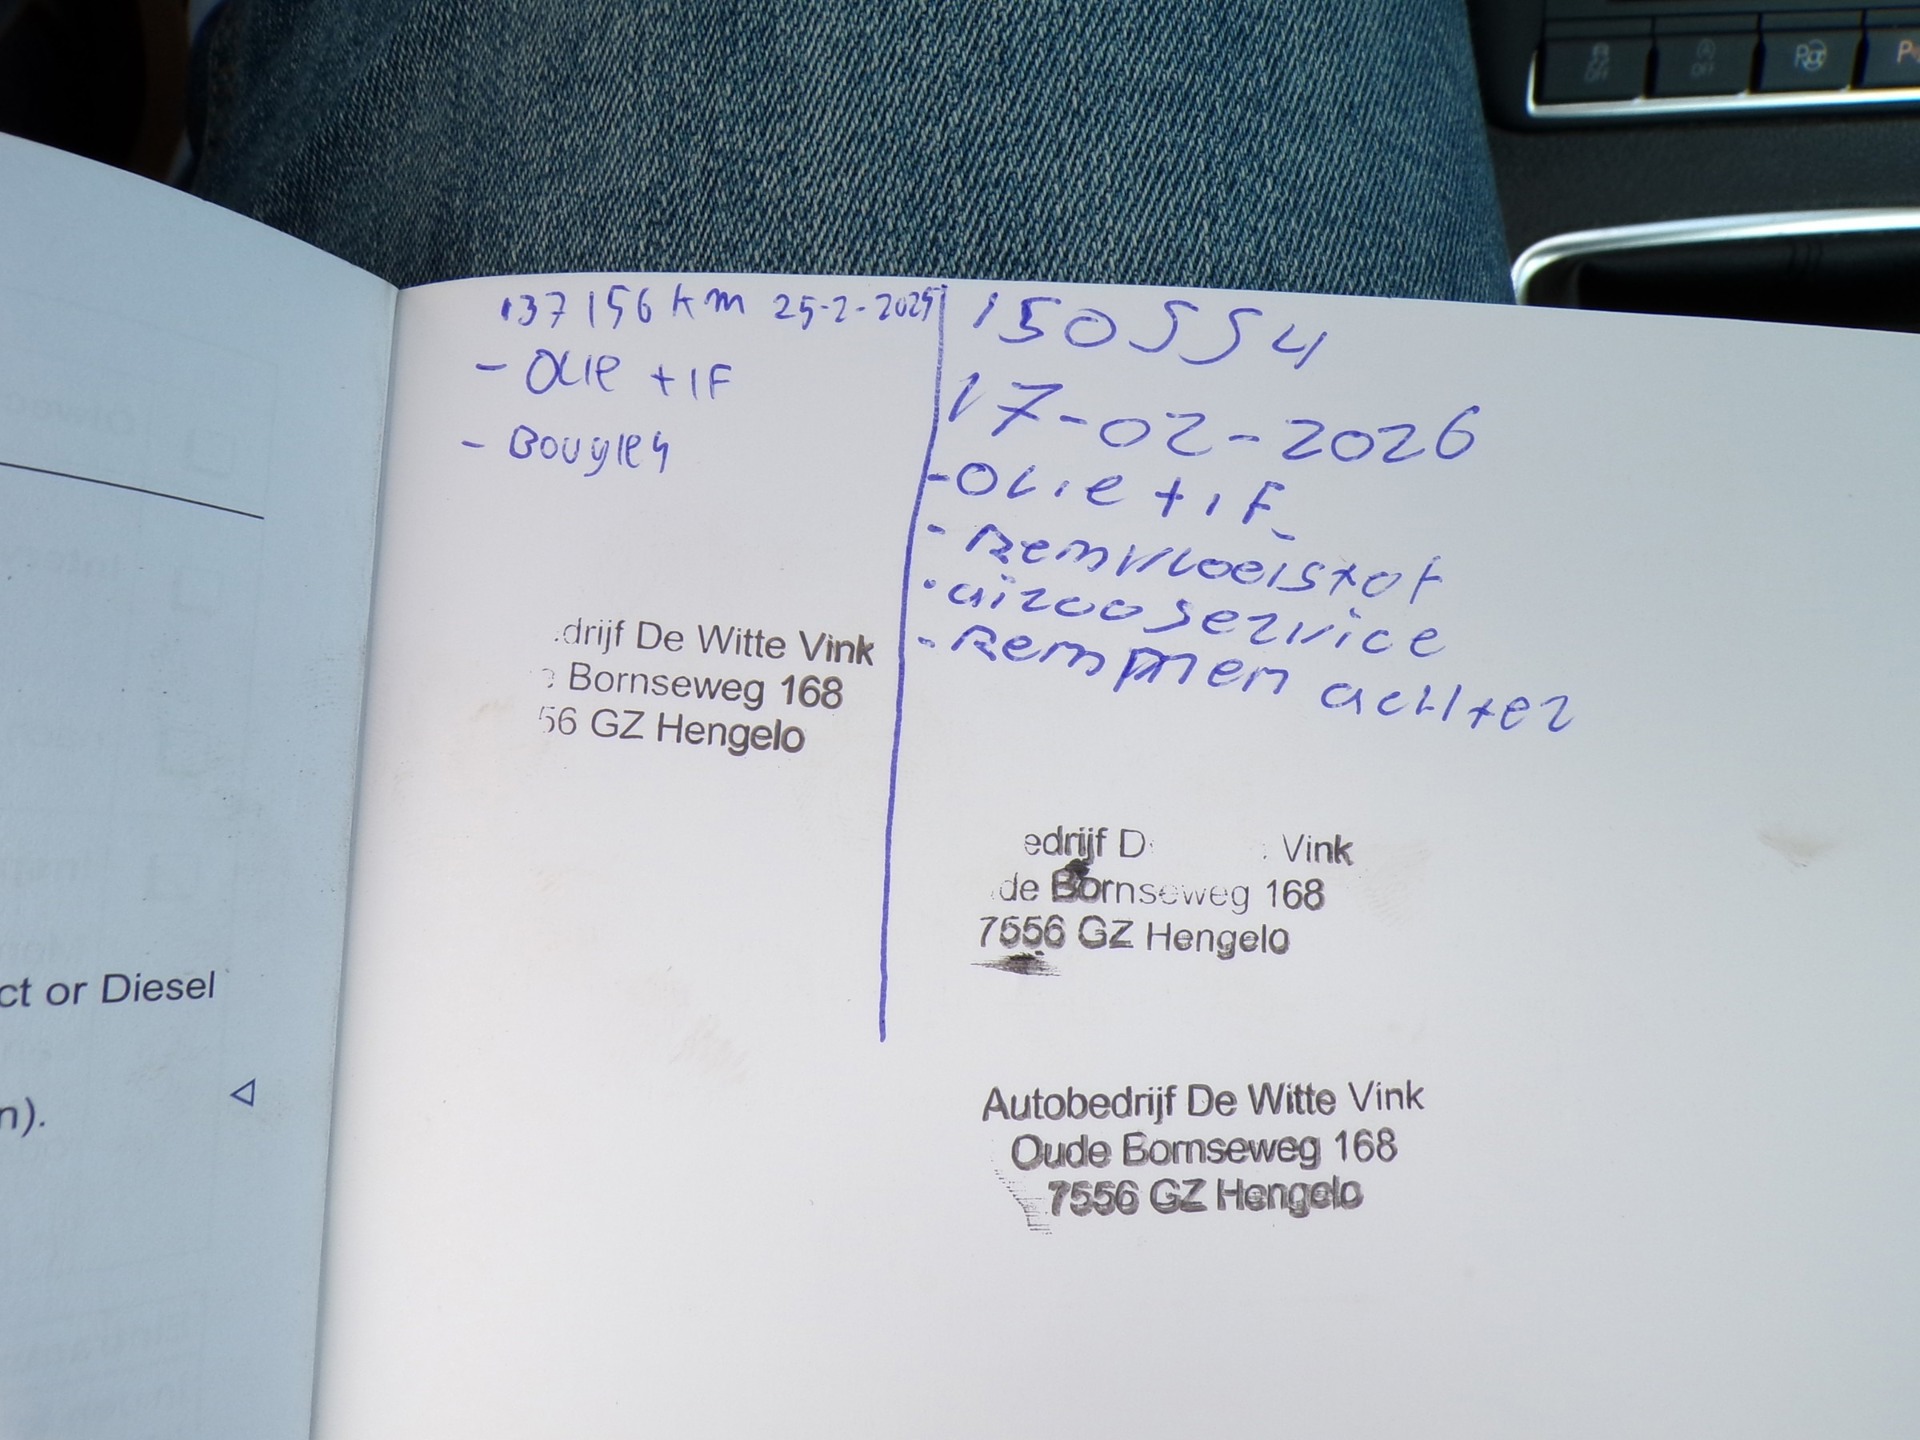 137156 km 25-2-2025
- Olie + IF
- Bougies
drijf De Witte Vink
Bornseweg 168
56 GZ Hengelo
150554
17-02-2026
- Olie + IF
- Remvloeistof
- aircoservice
- Remmen achter
edrijf D Vink
de Bornseweg 168
7556 GZ Hengelo
Autobedrijf De Witte Vink
Oude Bornseweg 168
7556 GZ Hengelo
ct or Diesel
n).
OFF
OFF